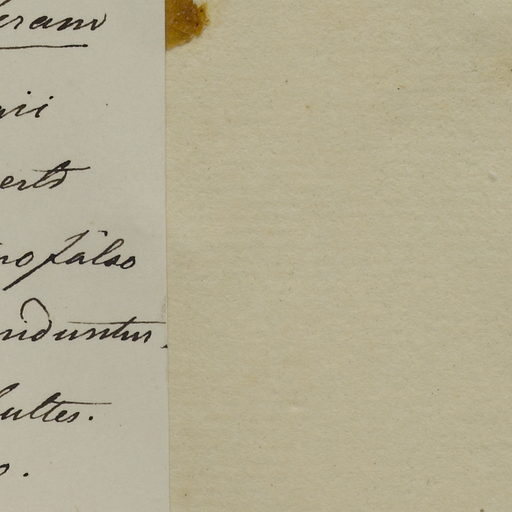 eram
rii
erts
ro fälso
nduntur.
ultes.
o.